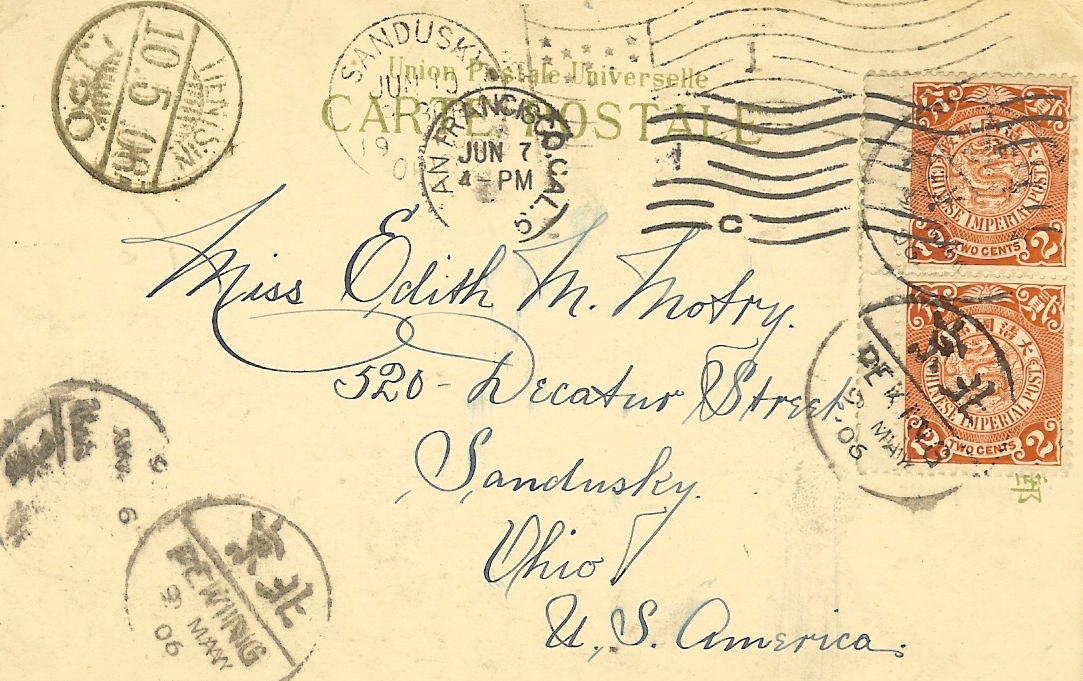 Union Postale Universelle
CARTE POSTALE
TIENTSIN
10.5.06
I.J.P.O
SANDUSKY
JUN
19
SAN FRANCISCO, CAL.
JUN 7
4-PM
1
C
CHINESE IMPERIAL POST
2 TWO CENTS 2
大清國
CHINESE IMPERIAL POST
2 TWO CENTS 2
北京
PEKING
9 MAY
06
郵
Miss Edith M. Motry.
520 - Decatur Street
Sandusky.
Ohio
U. S. America.
北京
PEKING
9 MAY
06